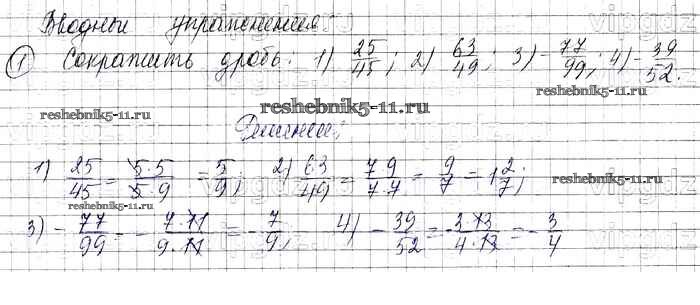 Вводные упражнения
① Сократить дробь: 1) 25/45; 2) 63/49; 3) -77/99; 4) -39/52.
reshebnik5-11.ru
reshebnik5-11.ru reshebnik5-11.ru
Решение:
1) 25/45 = 5·5/5·9 = 5/9; 2) 63/49 = 7 9/7·7 = 9/7 = 1 2/7;
reshebnik5-11.ru
3) -77/99 = -7·11/9·11 = -7/9; 4) -39/52 = -3·13/4·13 = -3/4